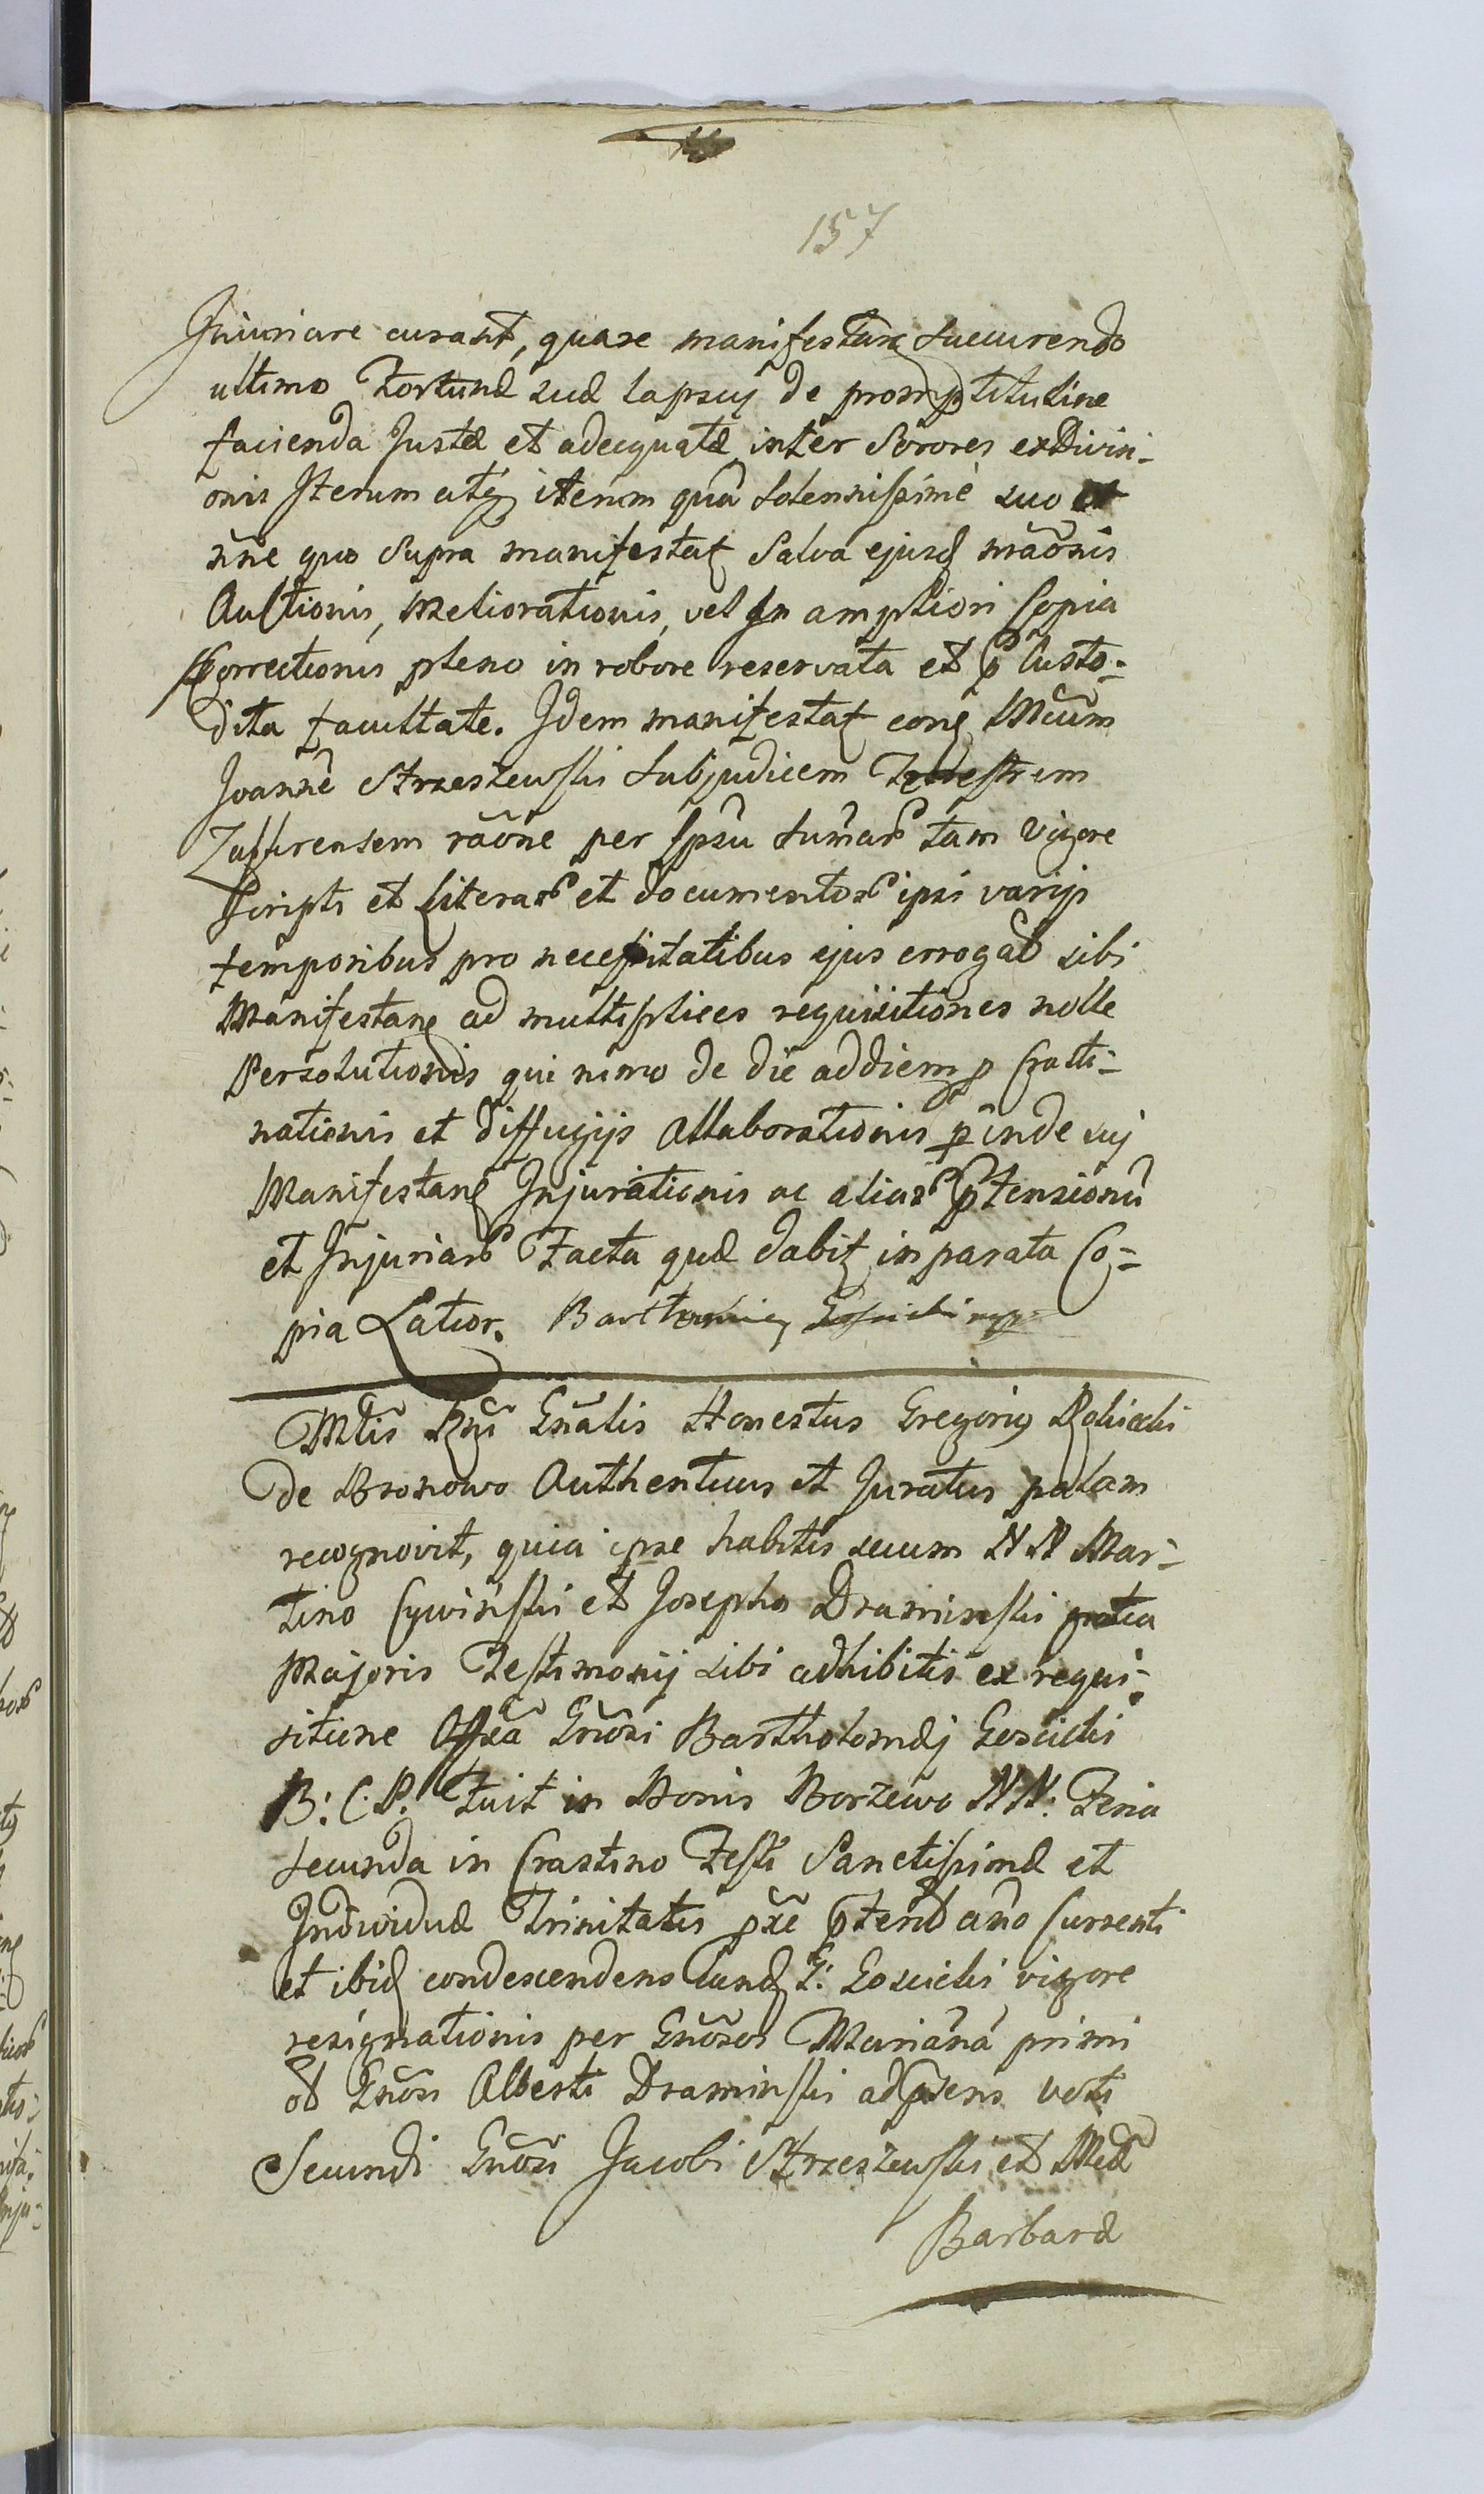 157
Injuriare curant, quare manifestans Succurendo
ultimo Fortunæ suæ lapsuj de promptitutine
facienda Justæ et adæquatæ inter Sorores exdivisi-
onis Iterum atq iterum quã Solennissimè suo
nñe quo Supra manifestat Salva ejusd mãonis
Auctionis, Meliorationis, vel In ampliori Copia
Correctionis pleno in robore reservata et p Custo-
dita facultate. Idem manifestat cong Mcum
Joannẽ Strzeszewski Subjudicem Terrestrem
Zakrensem rãone per Ipsũ Sumar tam Vigore
Scripti et Literar et documentor ipsi varijs
temporibus pro necessitatibus ejus errogat sibi
Manifestans ad multiplices requisitiones nolle
Persolutionis qui nimo de die addiem p Crasti-
nationis et diffugijs Allaborationis p inde suj
Manifestans Injurationis ac aliar ptensionũ
et Injuriar Facta quæ dabit in parata Co-
pia Latior. Bartłomiey Gosricki mp
Mtis Rgni Gnãlis Honestus Gregorig
de Bronowo Authenticus et Juratus palam
recognovit, quia ipse habitis secum N N Mar-
tino Cywinski et Josepho Draminski gratia
Majoris Testimonij sibi adhibitis ex requi-
sitione Gnõsi Bartholomæj
B: C: P: Fuit in Bonis Borzewo NN: Feria
secunda in Crastino Festi Sanctissimæ et
Individuæ Trinitatis pxẽ pterit año Currenti
et ibid condescendens eund G: vigore
resignationis per Gnõsos Mariãnã primi
ol Gnõsi Alberti Draminski ad psens voti
Secundi Gnõsi Jacobi Strzeszewski et Mcæ
Barbaræ